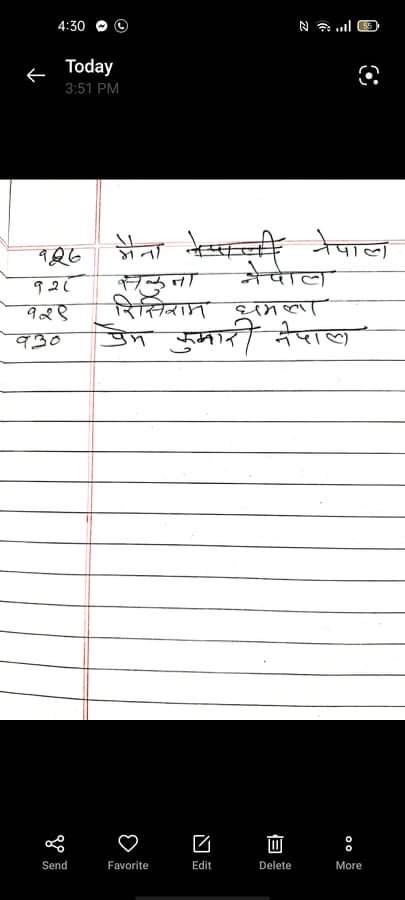 4:30
55
Today
3:51 PM
१२७ मैना नेपाली नेपाल
१२८ सकुना नेपाल
१२९ रिसिराम धमला
१३० प्रेम कुमारी नेपाल
Send Favorite Edit Delete More